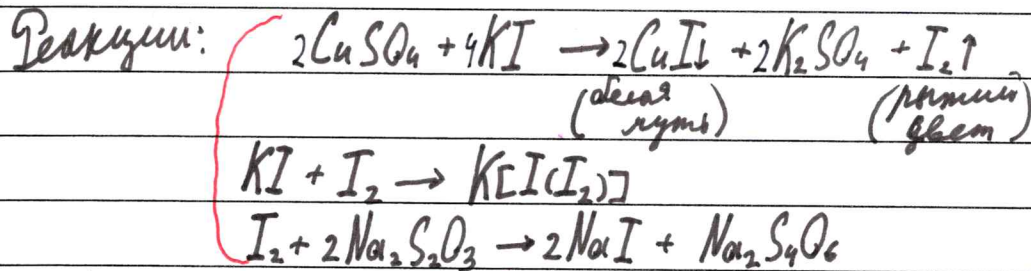 Реакции: 2CuSO₄ + 4KI → 2CuI↓ + 2K₂SO₄ + I₂↑
(белая муть) (рыжий цвет)
KI + I₂ → K[I(I₂)]
I₂ + 2Na₂S₂O₃ → 2NaI + Na₂S₄O₆